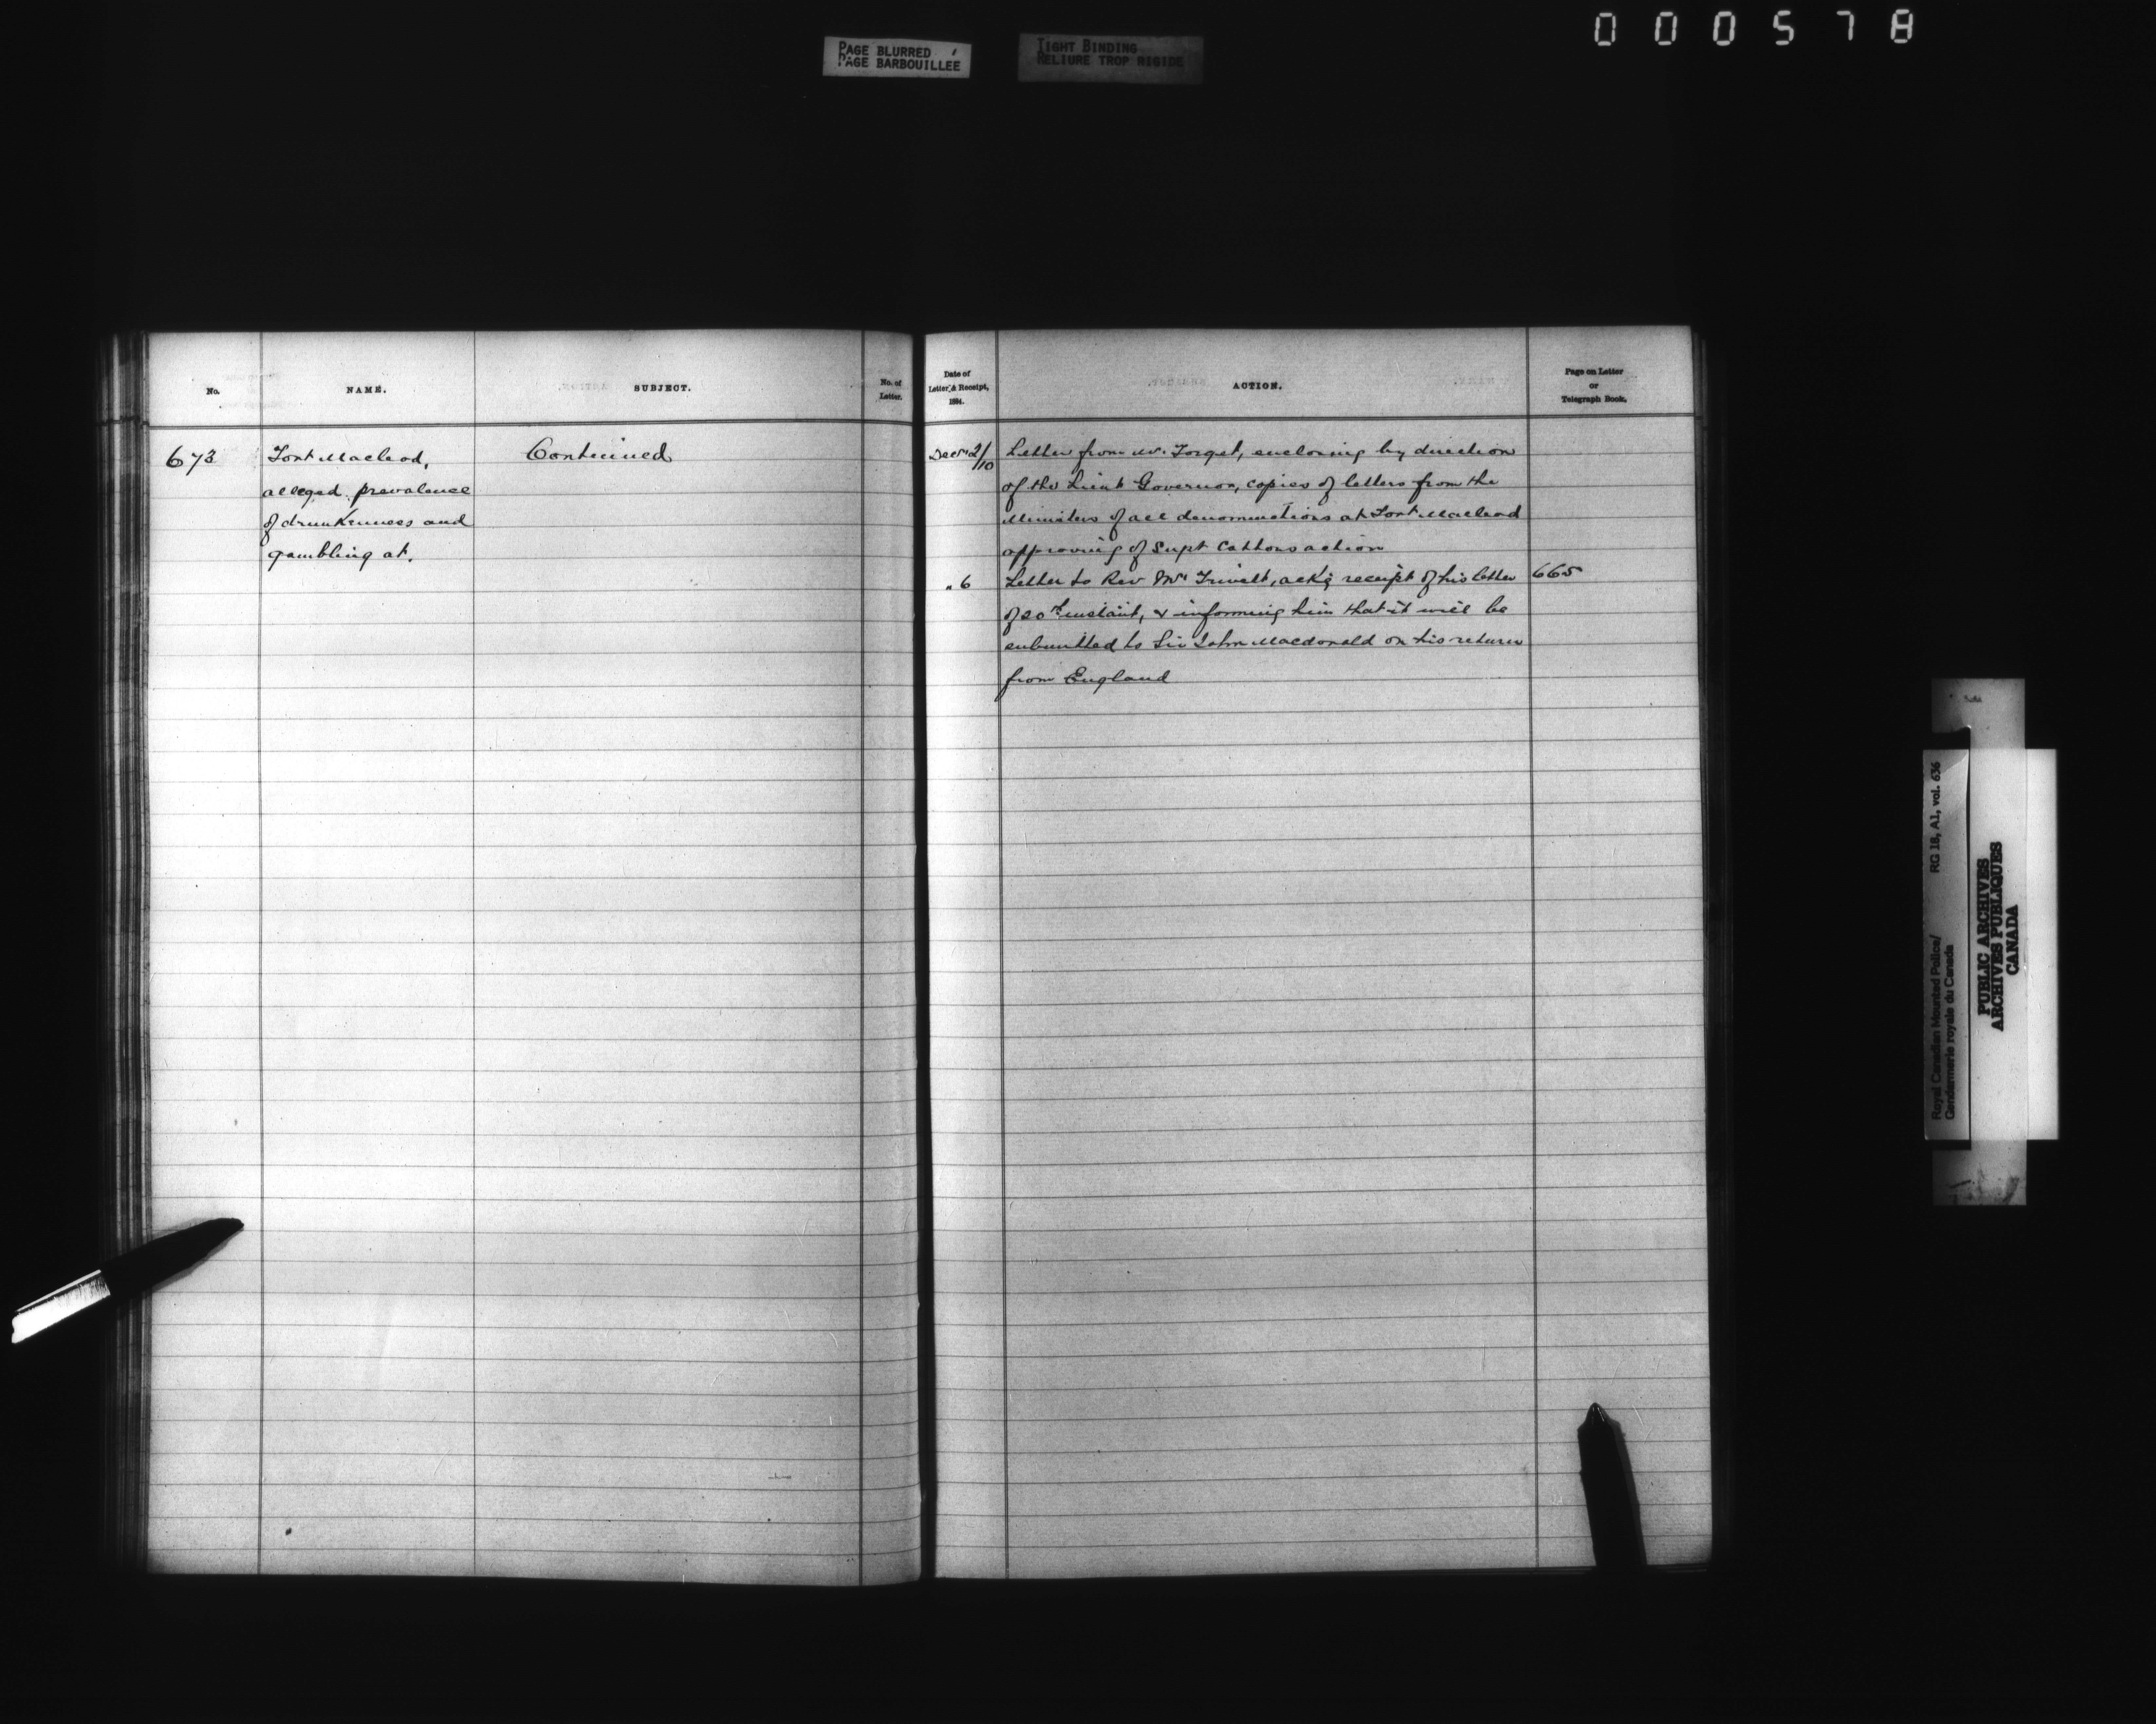 000578
PAGE BLURRED
PAGE BARBOUILLEE
TIGHT BINDING
RELIURE TROP RIGIDE
No.
NAME.
SUBJECT.
No. of
Letter.
Date of
Letter & Receipt,
1884.
ACTION.
Page on Letter
or
Telegraph Book.
673
Fort Macleod,
alleged prevalence
of drunkenness and
gambling at.
Continued
Decr 2/10
Letter from Mr. Forget, enclosing by direction
of the Lieut Governor, copies of letters from the
Ministers of all denominations at Fort Macleod
approving of Supt Cottons action
" 6
Letter to Rev Mr Trivett, ackg receipt of his letter
of 20th instant, & informing him that it will be
submitted to Sir John Macdonald on his return
from England
665
Royal Canadian Mounted Police/
Gendarmerie royale du Canada
RG 18, A1, vol. 636
PUBLIC ARCHIVES
ARCHIVES PUBLIQUES
CANADA